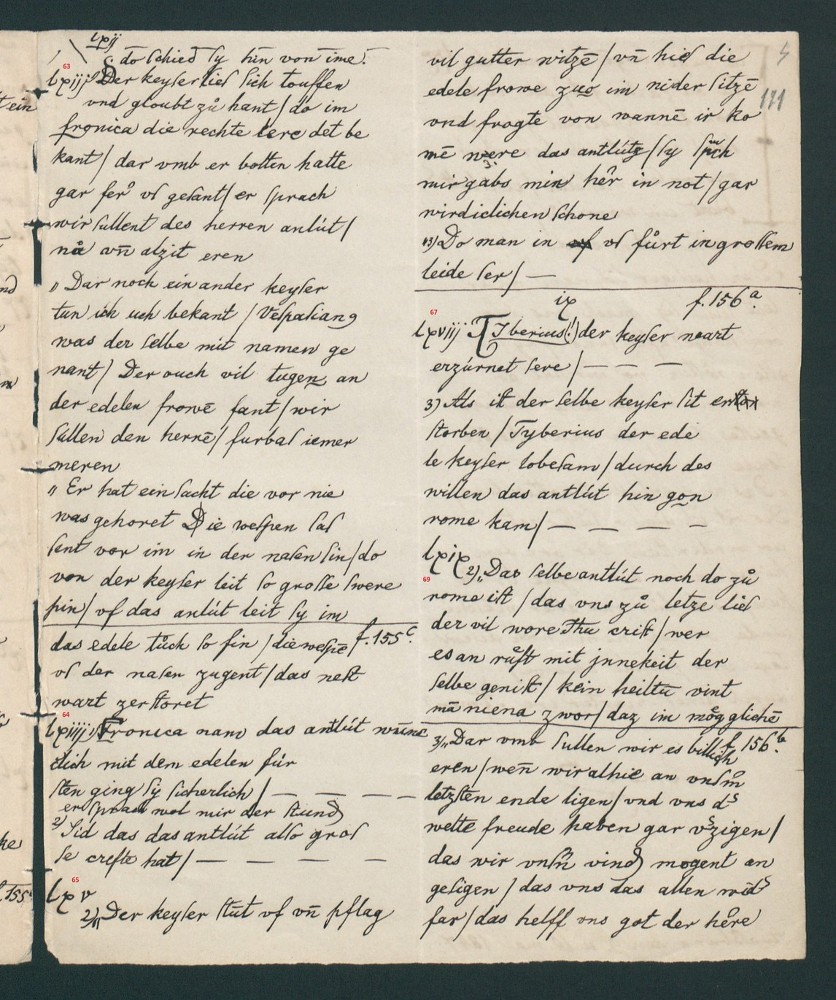 lxij
do schied sy hin von ime!
63
lxiij Der keyser lies sich touffen
vnd gloubt zů hant / do im
fronica die rechte lere det be
kant / dar vmb er botten hatte
gar fer vs gesant / er sprach
wir sullent des herren antlút /
nů vn̄ alzit eren
„ Dar noch ein ander keyser
tun ich uch bekant / Vespasian9
was der selbe mit namen ge
nant / Der ouch vil tugen an
der edelen frowē fant / wir
sullen den herrē / furbas iemer
meren
„ Er hat ein sucht die vor nie
was gehoret Die wespen sas
sent vor im in der nasen sin / do
von der keyser leit so grosse swere
pin / vf das antlút leit sy im
das edele tůch so fin / die wespē f. 155c.
vs der nasen zugent / das nest
wart zerstoret
64
lxiiij Fronica nam das antlút
clich mit dem edelen für
sten ging sy sicherlich / — — — —
er sprach wol mir der stund
2) Sid das das antlút also gros
se crefte hat / — — — —
65
lxv
2) „ Der keyser stůt vf vn̄ pflag
vil gutter witzē / vn̄ hies die
edele frowe zuo im nider sitzē
111
vnd fragte von wannē ir ko
mē were das antlútz / sy sprach
mir gabs min her in not / gar
wirdiclichen schone
13) Do man in vs fůrt in grossem
leide ser / —
ix f. 156a.
67
lxviij Tyberius(!) der keyser wart
erzúrnet sere / — — —
3) Als ist der selbe keyser sit er
storben / Tyberius der ede
le keyser lobesam / durch des
willen das antlút hin gon
rome kam / — — — —
lxix 2) „ Das selbe antlút noch do zů
69
rome ist / das vns zů letze lies
der vil wore Jhu crist / wer
es an růft mit jnnekeit der
selbe genist / kein heiltu vint
mā niena zwor / daz im mögglichē
3) „ Dar vmb sullen wir es billich f. 156b.
eren / wen̄ wir alhie an vnsm
letzsten ende ligen / vnd vns ds
welte freude haben gar vszigen /
das wir vnsn vind mogent an
gesigen / das vns das allen wids
far / das helff vns got der here